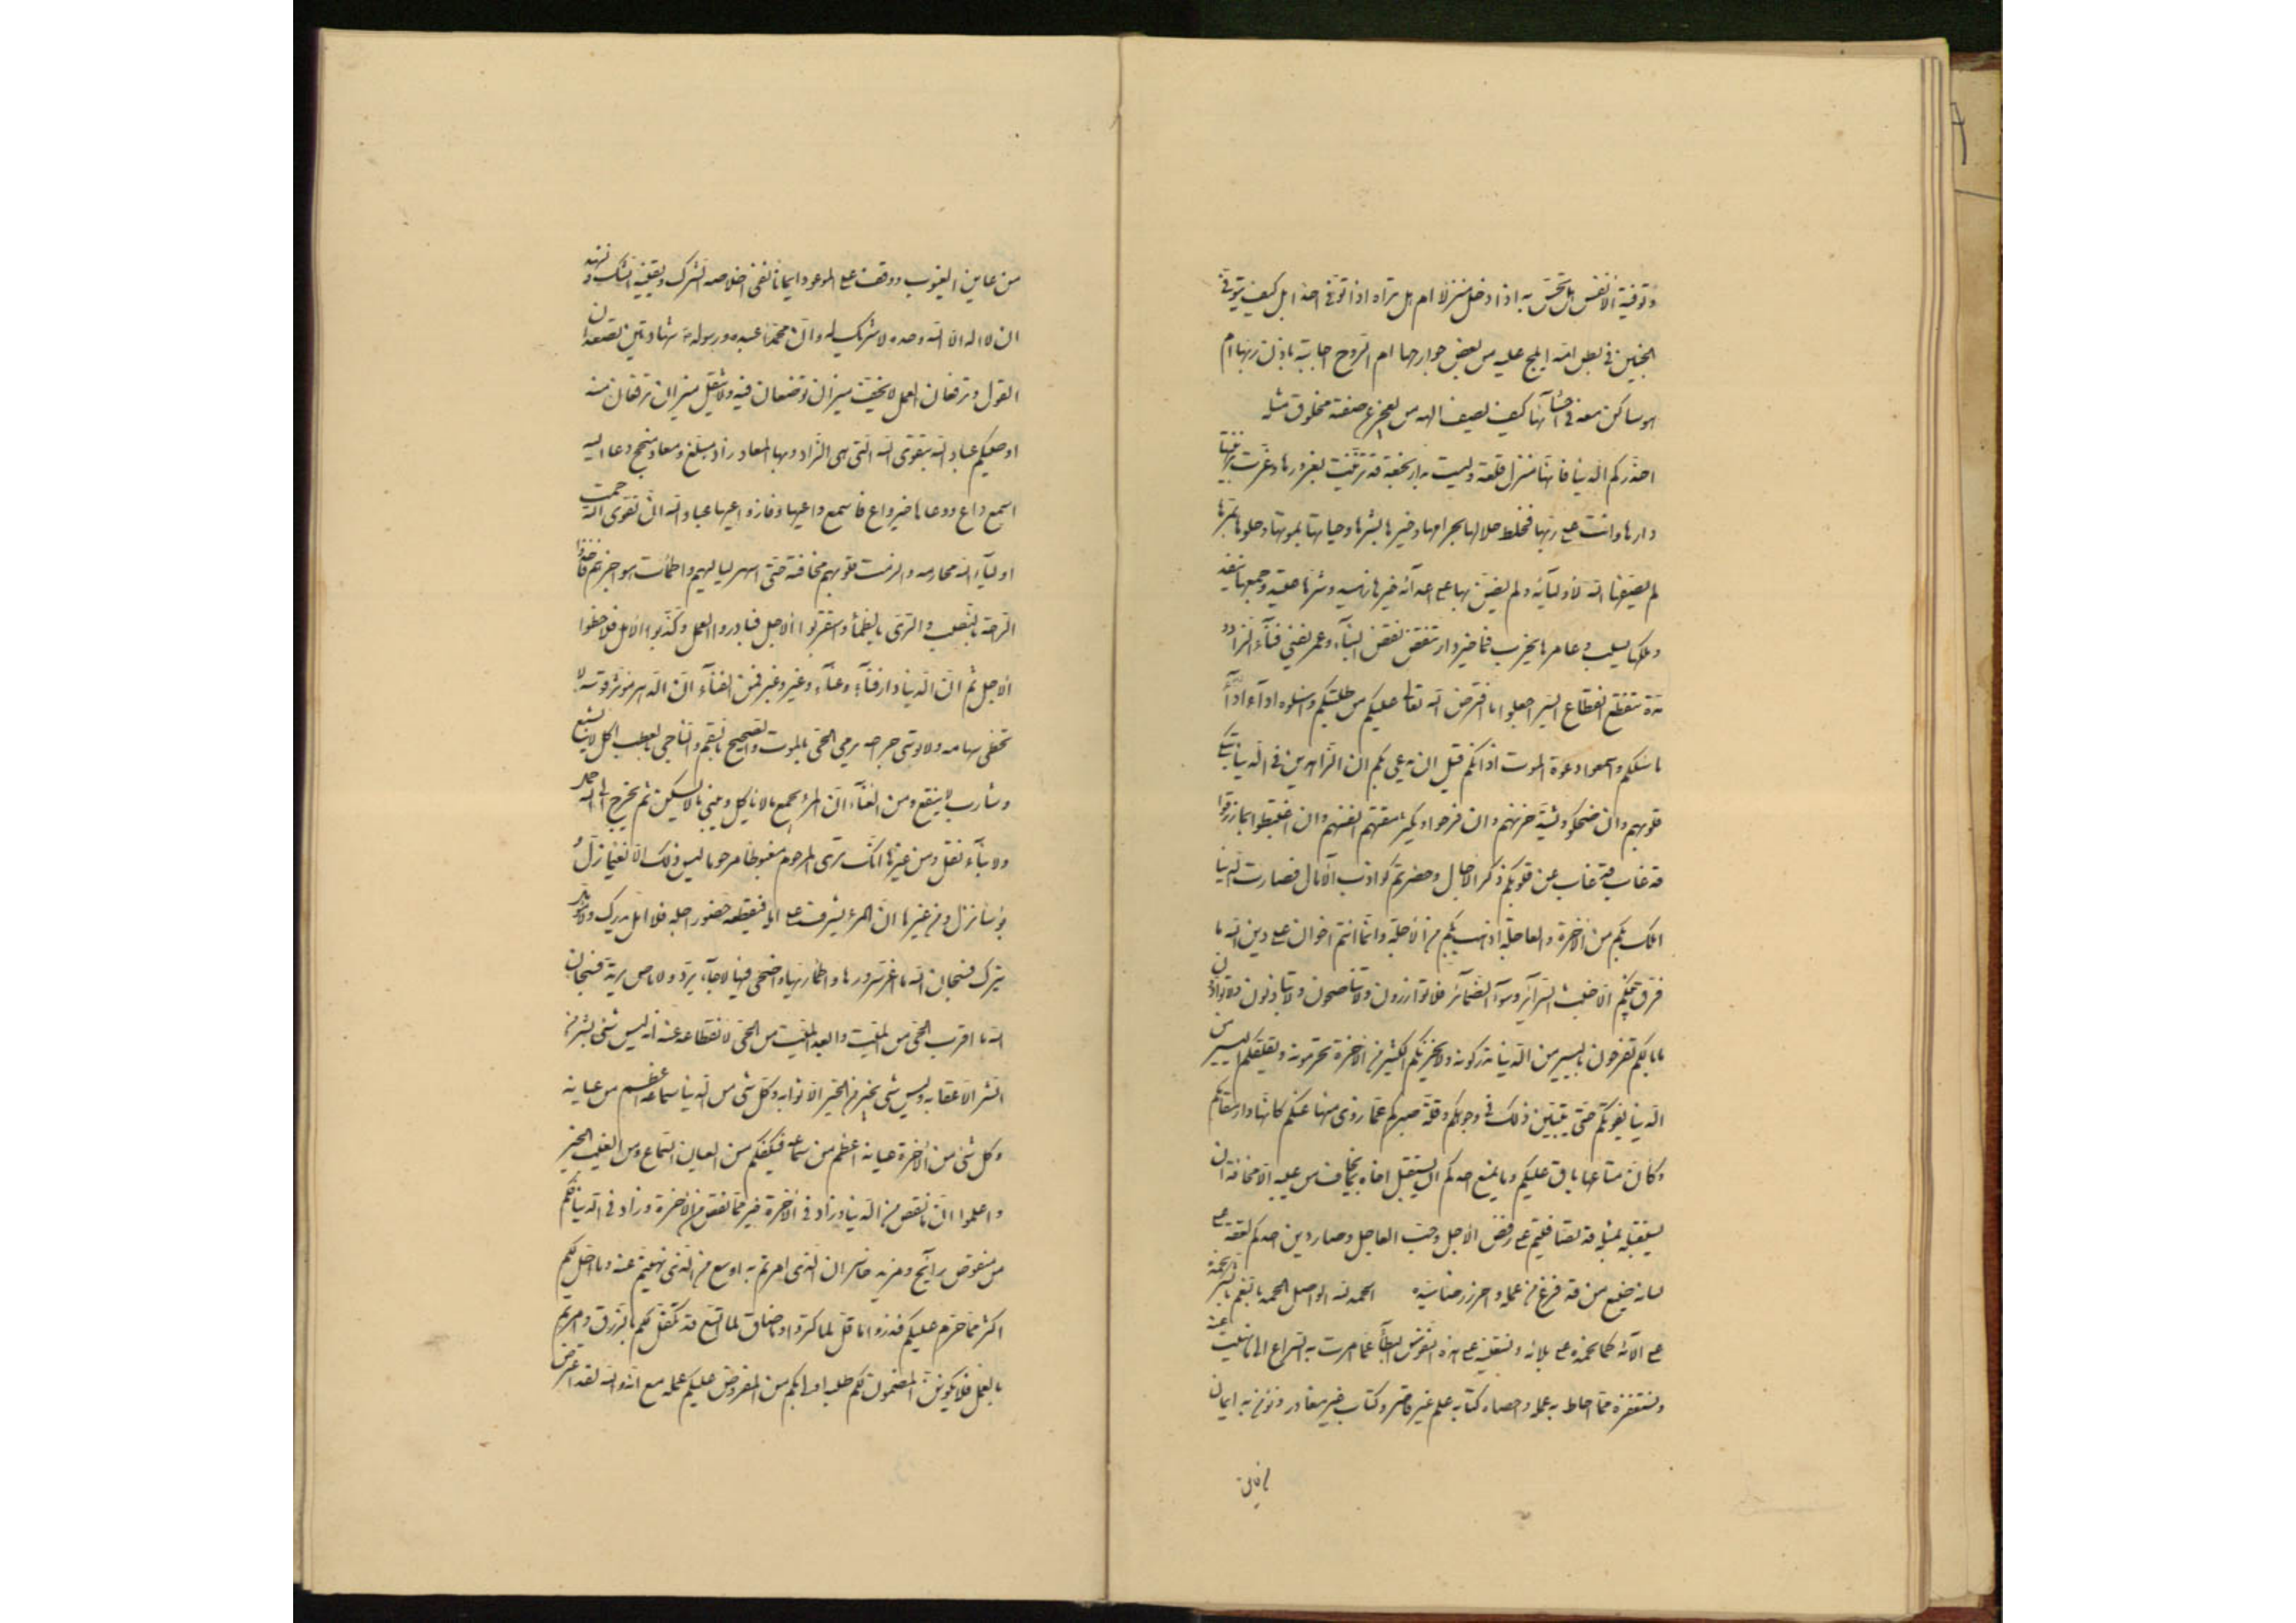 وتوفية الانفس هل تحس به اذا دخل منزلا ام هل تراه اذا توفى احدا بل كيف يتوفى
الجنين في بطن امه ايلج عليه من بعض جوارحها ام الروح اجابته باذن ربها ام
هو ساكن معه في احشائها كيف يصف الهه من يعجز عن صفة مخلوق مثله
احذركم الدنيا فانها منزل قلعة وليست بدار نجعة قد تزينت بغرورها وغرت بزينتها
دارها هانت على ربها فخلط حلالها بحرامها وخيرها بشرها وحياتها بموتها وحلوها بمرها
لم يصفها الله لاوليائه ولم يضن بها على اعدائه خيرها زهيد وشرها عتيد وجمعها ينفد
وملكها يسلب وعامرها يخرب فما خير دار تنقض نقض البناء وعمر يفنى فناء الزاد و
مدة تنقطع انقطاع السير اجعلوا ما افترض الله تعالى عليكم من طلبتكم واسئلوه اداء
ما سئلكم واسمعوا دعوة الموت اذانكم قبل ان يدعى بكم ان الزاهدين في الدنيا تبكي
قلوبهم وان ضحكوا ويشتد حزنهم وان فرحوا ويكثر مقتهم انفسهم وان اغتبطوا بما رزقوا
قد غاب عن قلوبكم ذكر الاجال وحضرتكم كواذب الآمال فصارت الدنيا
املك بكم من الاخرة والعاجلة اذهب بكم من الآجلة وانما انتم اخوان على دين الله ما
فرق بينكم الا خبث السرائر وسوء الضمائر فلا توازرون ولا تناصحون ولا تباذلون ولا توادون
ما بالكم تفرحون باليسير من الدنيا تدركونه ولا يحزنكم الكثير من الاخرة تحرمونه ويقلقكم اليسير من
الدنيا يفوتكم حتى يتبين ذلك في وجوهكم وقلة صبركم عما زوى منها عنكم كانها دار مقامكم
وكأن متاعها باق عليكم وما يمنع احدكم ان يستقبل اخاه بما يخاف من عيبه الا مخافة ان
يستقبله بمثله قد تصافيتم على رفض الآجل وحب العاجل وصار دين احدكم لعقة على
لسانه صنيع من قد فرغ من عمله واحرز رضا سيده الحمد لله الواصل الحمد بالنعم والنعم بالشكر نحمده
على آلائه كما نحمده على بلائه ونستعينه على هذه النفوس البطاء عما امرت به السراع الى ما نهيت عنه
ونستغفره مما احاط به علمه واحصاه كتابه علم غير قاصر وكتاب غير مغادر ونؤمن به ايمان
من عاين الغيوب ووقف على الموعود ايمانا نفى اخلاصه الشرك ويقينه الشك ونشهد
ان لا اله الا الله وحده لا شريك له وان محمدا عبده ورسوله شهادتين تصعدان
القول وترفعان العمل لا يخف ميزان توضعان فيه ولا يثقل ميزان ترفعان منه
اوصيكم عباد الله بتقوى الله التي هي الزاد وبها المعاد زاد مبلغ ومعاد منجح دعا اليه
اسمع داع ووعاها خير واع فاسمع داعيها وفاز واعيها عباد الله ان تقوى الله حمت
اولياء الله محارمه والزمت قلوبهم مخافته حتى اسهر لياليهم واظمأت هواجرهم فاخذوا
الراحة بالنصب والري بالظمأ واستقربوا الاجل فبادروا العمل وكذبوا الامل فلاحظوا
الاجل ثم ان الدنيا دار فناء وعناء وغير وعبر فمن الفناء ان الدهر موتر قوسه لا
تخطى سهامه ولا توسى جراحه يرمى الحي بالموت والصحيح بالسقم والناجي بالعطب آكل لا يشبع
وشارب لا ينقع ومن العناء ان المرء يجمع ما لا ياكل ويبني ما لا يسكن ثم يخرج الى الله لا مالا حمل
ولا بناء نقل ومن غيرها انك ترى المرحوم مغبوطا والمغبوط مرحوما ليس ذلك الا نعيما زل و
بؤسا نزل ومن عبرها ان المرء يشرف على امله فيقتطعه حضور اجله فلا امل يدرك ولا مؤمل
يترك فسبحان الله ما اغر سرورها واظمأ ريها واضحى فيئها لا جاء يرد ولا ماض يرتد فسبحان
الله ما اقرب الحي من الميت وابعد الميت من الحي لانقطاعه عنه انه ليس شئ بشر من
الشر الا عقابه وليس شئ بخير من الخير الا ثوابه وكل شئ من الدنيا سماعه اعظم من عيانه
وكل شئ من الاخرة عيانه اعظم من سماعه فيكفكم من العيان السماع ومن الغيب الخبر
واعلموا ان ما نقص من الدنيا وزاد في الاخرة خير مما نقص من الاخرة وزاد في الدنيا فكم
من منقوص رابح ومزيد خاسر ان الذي امرتم به اوسع من الذي نهيتم عنه وما احل لكم
اكثر مما حرم عليكم فذروا ما قل لما كثر وما ضاق لما اتسع قد تكفل لكم بالرزق وامرتم
بالعمل فلا يكونن المضمون لكم طلبه اولى بكم من المفروض عليكم عمله مع انه والله لقد اعترض